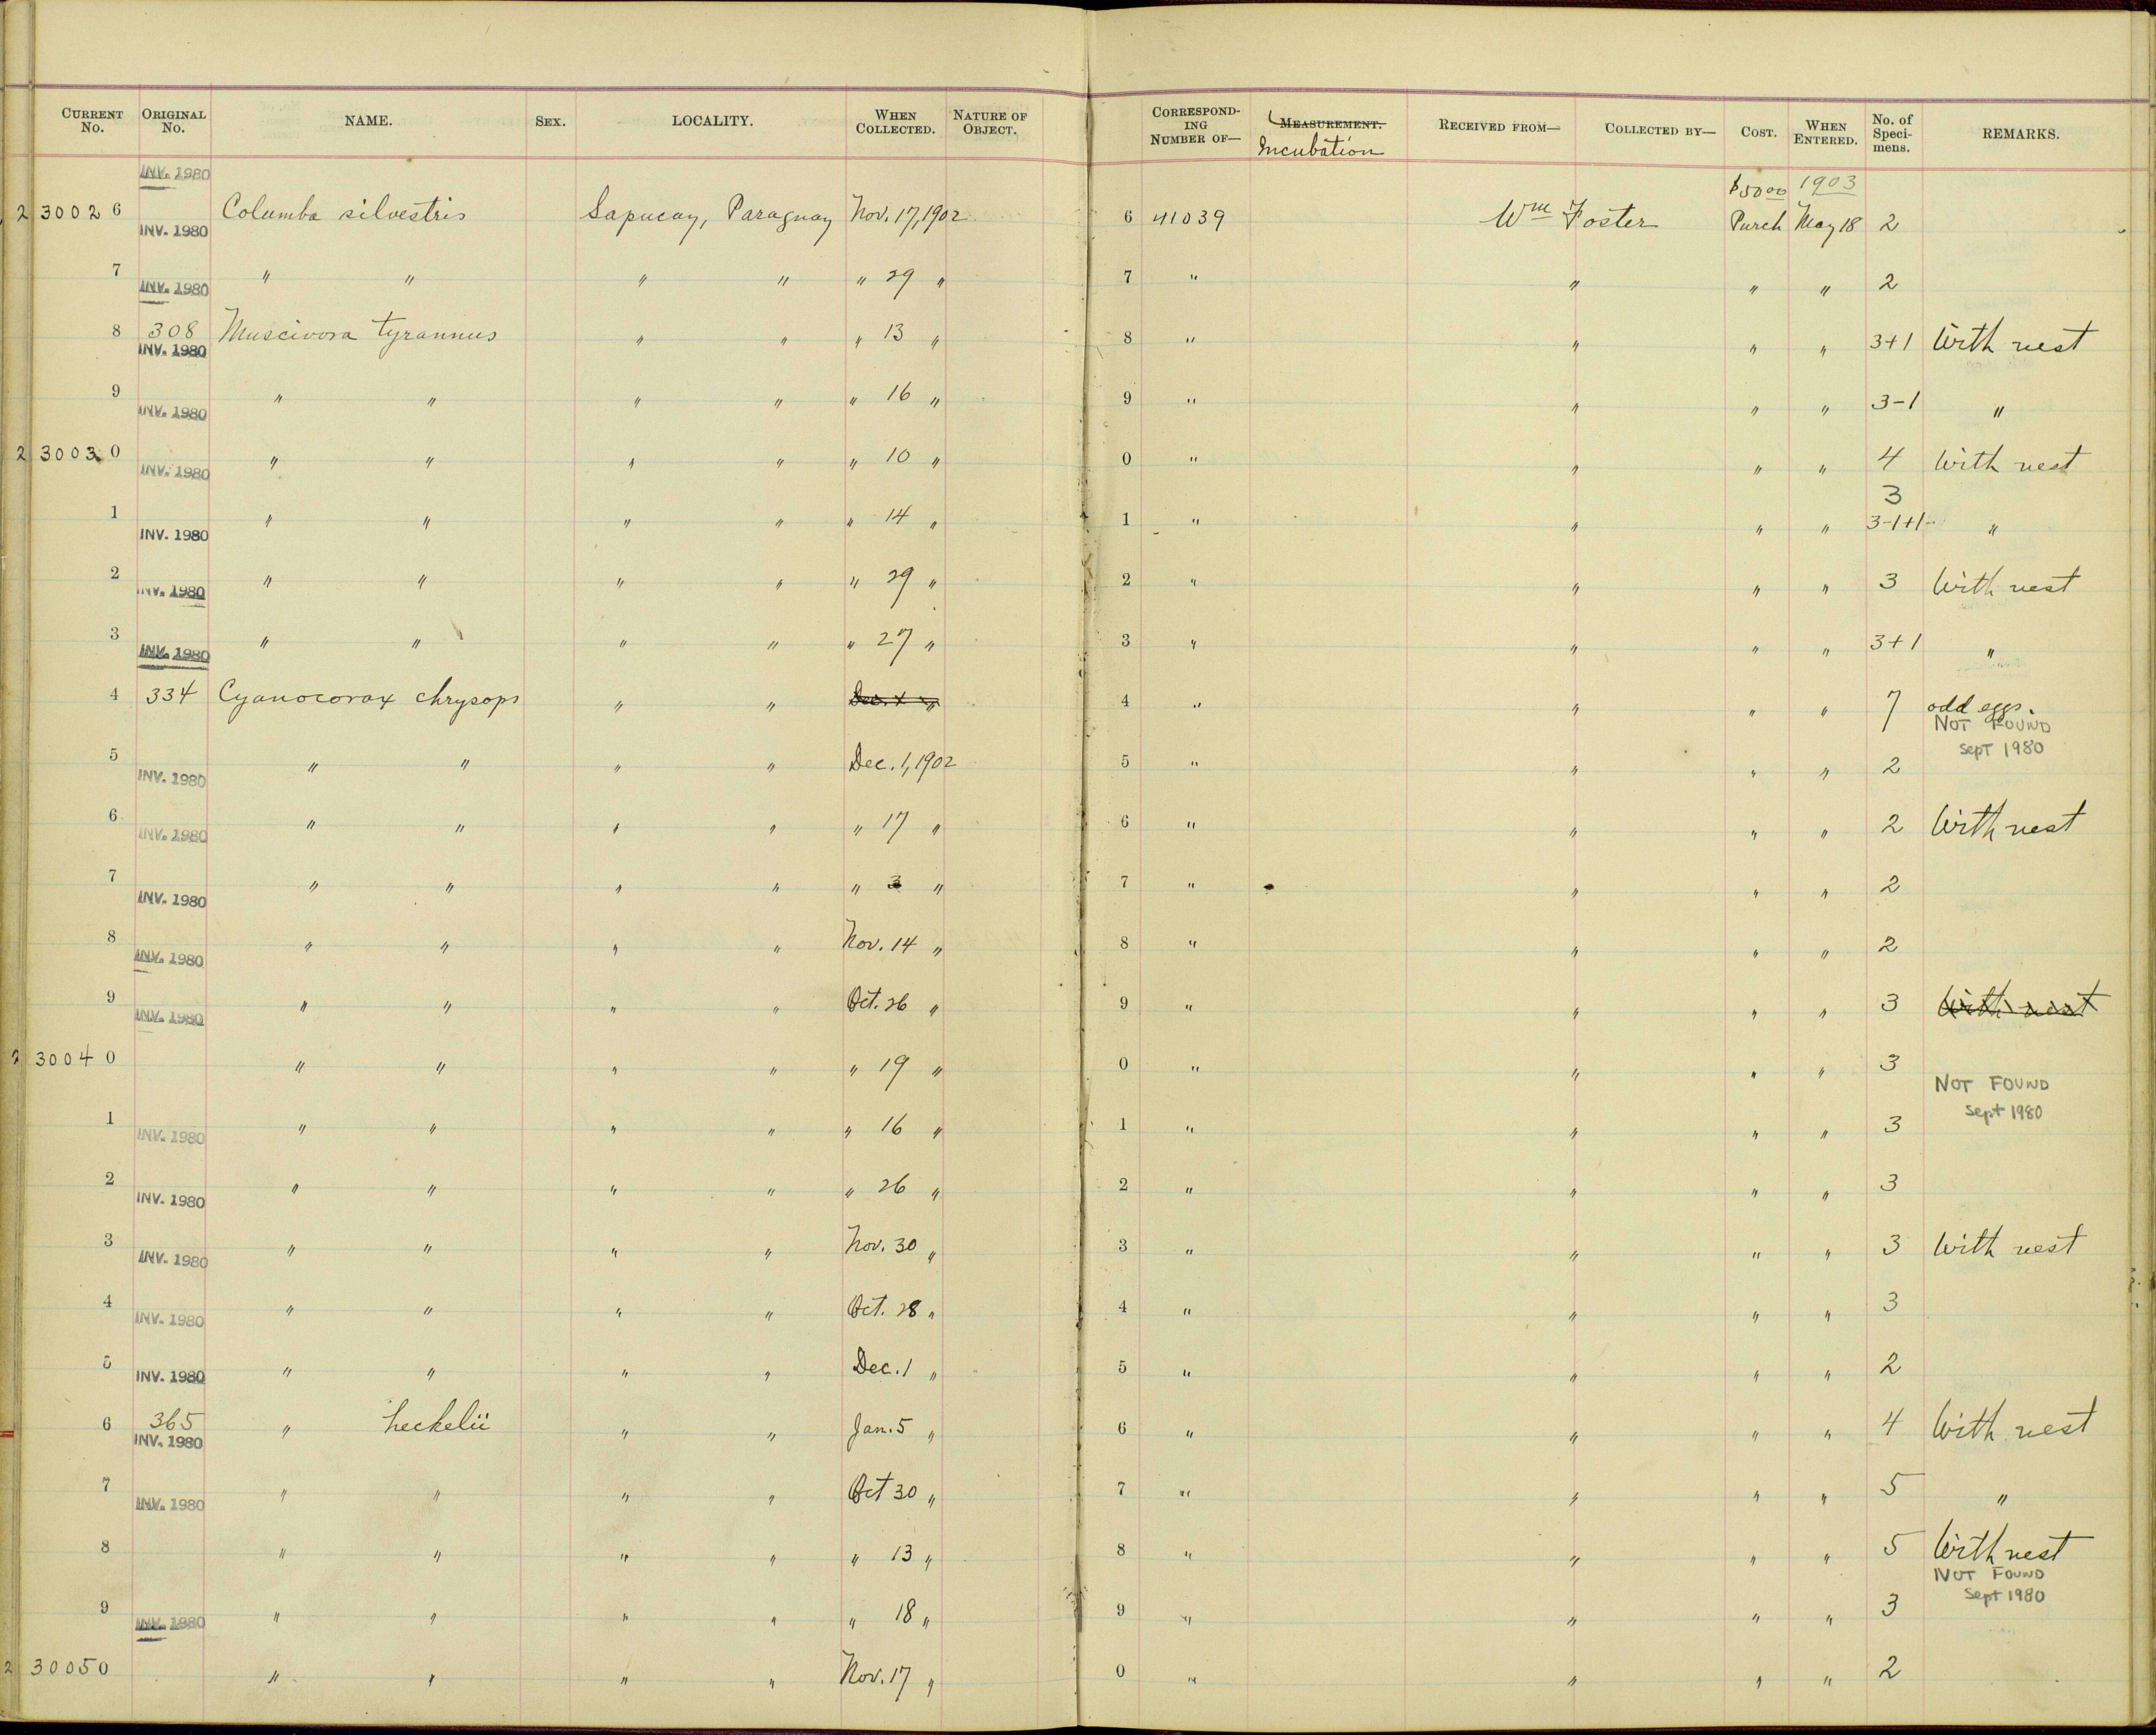 CURRENT No. ORIGINAL No. NAME. SEX. LOCALITY. WHEN COLLECTED. NATURE OF OBJECT. CORRESPONDING NUMBER OF— MEASUREMENT. Incubation RECEIVED FROM— COLLECTED BY— COST. WHEN ENTERED. No. of Specimens. REMARKS.
INV. 1980 $50 00 1903
2 3002 6 Columba silvestris Sapucay, Paraguay Nov. 17, 1902 6 41039 Wm Foster Purch May 18 2
INV. 1980
7 " " " " " 29 " 7 " " " " 2
INV. 1980
8 308 Muscivora tyrannus " " " 13 " 8 " " " " 3+1 With nest
INV. 1980
9 " " " " " 16 " 9 " " " " 3-1 "
INV. 1980
2 3003 0 " " " " " 10 " 0 " " " " 4 With nest
INV. 1980 3
1 " " " " " 14 " 1 " " " " 3-1+1- "
INV. 1980
2 " " " " " 29 " 2 " " " " 3 With nest
INV. 1980
3 " " " " " 27 " 3 " " " " 3+1 "
INV. 1980
4 334 Cyanocorax chrysops " " Dec. 1 " 4 " " " " 7 odd eggs.
NOT FOUND
Sept 1980
5 " " " " Dec. 1, 1902 5 " " " " 2
INV. 1980
6 " " " " " 17 " 6 " " " " 2 With nest
INV. 1980
7 " " " " " 3 " 7 " " " " 2
INV. 1980
8 " " " " Nov. 14 " 8 " " " " 2
INV. 1980
9 " " " " Oct. 26 " 9 " " " " 3 With nest
INV. 1980
2 3004 0 " " " " " 19 " 0 " " " " 3
NOT FOUND
Sept 1980
1 " " " " " 16 " 1 " " " " 3
INV. 1980
2 " " " " " 26 " 2 " " " " 3
INV. 1980
3 " " " " Nov. 30 " 3 " " " " 3 With nest
INV. 1980
4 " " " " Oct. 28 " 4 " " " " 3
INV. 1980
5 " " " " Dec. 1 " 5 " " " " 2
INV. 1980
6 365 " heckelii " " Jan. 5 " 6 " " " " 4 With nest
INV. 1980
7 " " " " Oct 30 " 7 " " " " 5 "
INV. 1980
8 " " " " " 13 " 8 " " " " 5 With nest
NOT FOUND
Sept 1980
9 " " " " " 18 " 9 " " " " 3
INV. 1980
2 3005 0 " " " " Nov. 17 " 0 " " " " 2